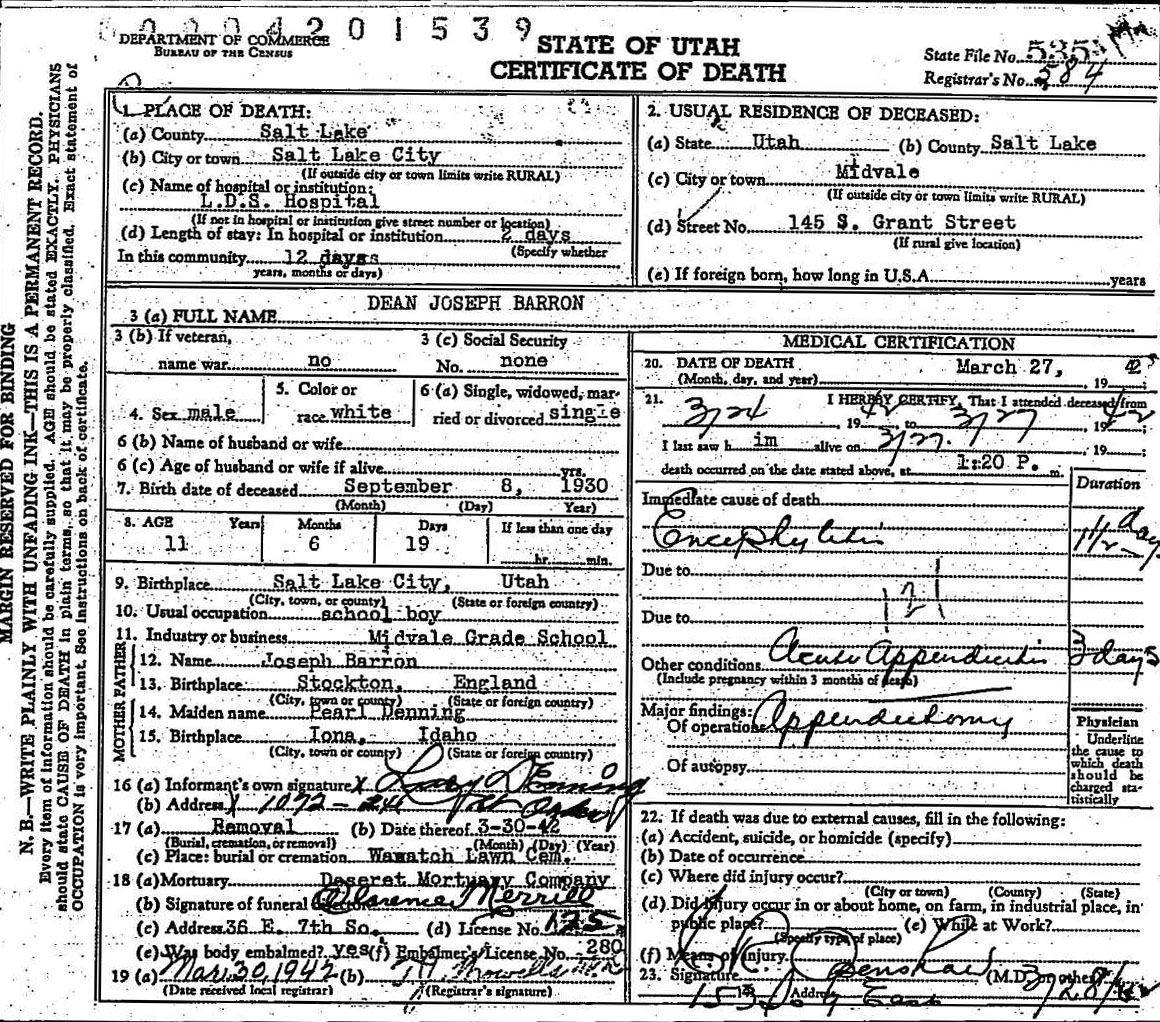 0 0 0 4 2 0 1 5 3 9
DEPARTMENT OF COMMERCE
BUREAU OF THE CENSUS
STATE OF UTAH
CERTIFICATE OF DEATH
State File No. 535
Registrar's No. 584
MARGIN RESERVED FOR BINDING
N. B.—WRITE PLAINLY WITH UNFADING INK—THIS IS A PERMANENT RECORD.
Every item of information should be carefully supplied. AGE should be stated EXACTLY. PHYSICIANS
should state CAUSE OF DEATH in plain terms, so that it may be properly classified. Exact statement of
OCCUPATION is very important. See instructions on back of certificate.
1. PLACE OF DEATH:
(a) County Salt Lake
(b) City or town Salt Lake City
(If outside city or town limits write RURAL)
(c) Name of hospital or institution:
L.D.S. Hospital
(If not in hospital or institution give street number or location)
(d) Length of stay: In hospital or institution 2 days
(Specify whether
In this community 12 days
years, months or days)
2. USUAL RESIDENCE OF DECEASED:
(a) State Utah (b) County Salt Lake
(c) City or town Midvale
(If outside city or town limits write RURAL)
(d) Street No. 145 S. Grant Street
(If rural give location)
(e) If foreign born, how long in U.S.A. years
3 (a) FULL NAME DEAN JOSEPH BARRON
3 (b) If veteran,
name war no
3 (c) Social Security
No. none
4. Sex male
5. Color or
race white
6 (a) Single, widowed, mar-
ried or divorced single
6 (b) Name of husband or wife
6 (c) Age of husband or wife if alive yrs.
7. Birth date of deceased September 8, 1930
(Month) (Day) Year)
8. AGE Years Months Days If less than one day
11 6 19 hr. min.
9. Birthplace Salt Lake City, Utah
(City, town, or county) (State or foreign country)
10. Usual occupation school boy
11. Industry or business Midvale Grade School
FATHER
12. Name Joseph Barron
13. Birthplace Stockton, England
(City, town or county) (State or foreign country)
MOTHER
14. Maiden name Pearl Denning
15. Birthplace Iona, Idaho
(City, town or county) (State or foreign country)
16 (a) Informant's own signature X Denning
(b) Address X 1072
17 (a) Removal (b) Date thereof 3-30-42
(Burial, cremation, or removal) (Month) (Day) (Year)
(c) Place: burial or cremation Wasatch Lawn Cem.
18 (a) Mortuary Deseret Mortuary Company
(b) Signature of funeral director Clarence Merrill
(c) Address 36 E. 7th So. (d) License No. 125
(e) Was body embalmed? yes (f) Embalmer's License No. 280
19 (a) Mar. 30, 1942 (b)
(Date received local registrar) (Registrar's signature)
MEDICAL CERTIFICATION
20. DATE OF DEATH March 27, 1942
(Month, day, and year)
21. I HEREBY CERTIFY, That I attended deceased from
3/24 1942 to 3/27 1942
I last saw him alive on 3/27. 19
death occurred on the date stated above, at 1:20 P. m.
Duration
Immediate cause of death
Encephylitis 1 1/2 day
Due to
121
Due to
Other conditions Acute Appendicitis 3 days
(Include pregnancy within 3 months of death)
Major findings:
Of operations Appendictomy
Of autopsy
Physician
Underline
the cause to
which death
should be
charged sta-
tistically
22. If death was due to external causes, fill in the following:
(a) Accident, suicide, or homicide (specify)
(b) Date of occurrence
(c) Where did injury occur?
(City or town) (County) (State)
(d) Did injury occur in or about home, on farm, in industrial place, in
public place? (e) While at Work?
(Specify type of place)
(f) Means of Injury
23. Signature Openshaw (M.D. or other) 3/28/42
Address East